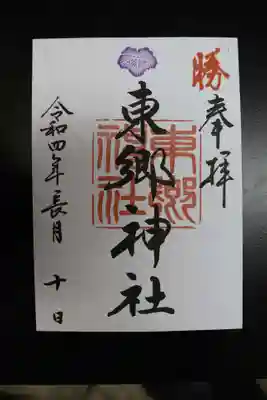 勝
奉拝
東郷神社
東郷神社
令和四年長月 十日